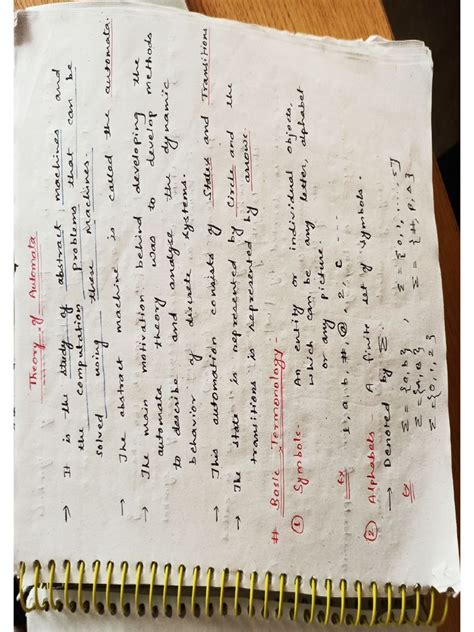 Theory of Automata
→ It is the study of abstract machines and
the computation problems that can be
solved using these machines.
→ The abstract machine is called the automata.
→ The main motivation behind developing the
automata theory was to develop methods
to describe and analyse the dynamic
behavior of discrete systems.
→ This automation consists of States and Transitions
→ The State is represented by Circle and the
transitions is represented by arrows.
# Basic Termonology -
① Symbols - An entity or individual objects,
which can be any letter, alphabet
or any picture.
Ex 1, a, b, #, @, 2, C ----
② Alphabets - A finite set of symbols.
→ Denoted by Σ.
Ex Σ = {a, b}
Σ = {0, 1, ....
Σ = {#, β, Δ}
Σ = {0, 1, 2}